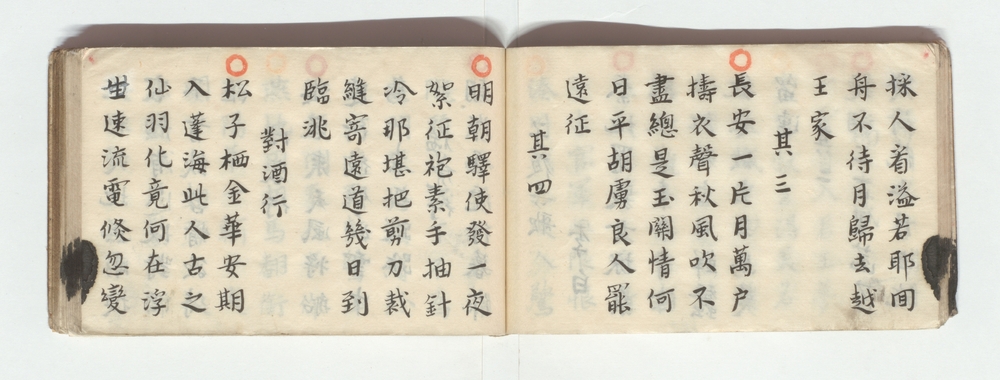 採人看溢若耶間
舟不待月歸去越
王家
其三
長安一片月萬户
擣衣聲秋風吹不
盡總是玉関情何
日平胡虜良人罷
遠征
其四
明朝驛使發一夜
絮征袍素手抽針
冷那堪把剪刀裁
縫寄遠道幾日到
臨洮
對酒行
松子栖金華安期
入蓬海此人古之
仙羽化竟何在浮
生速流電倏忽變